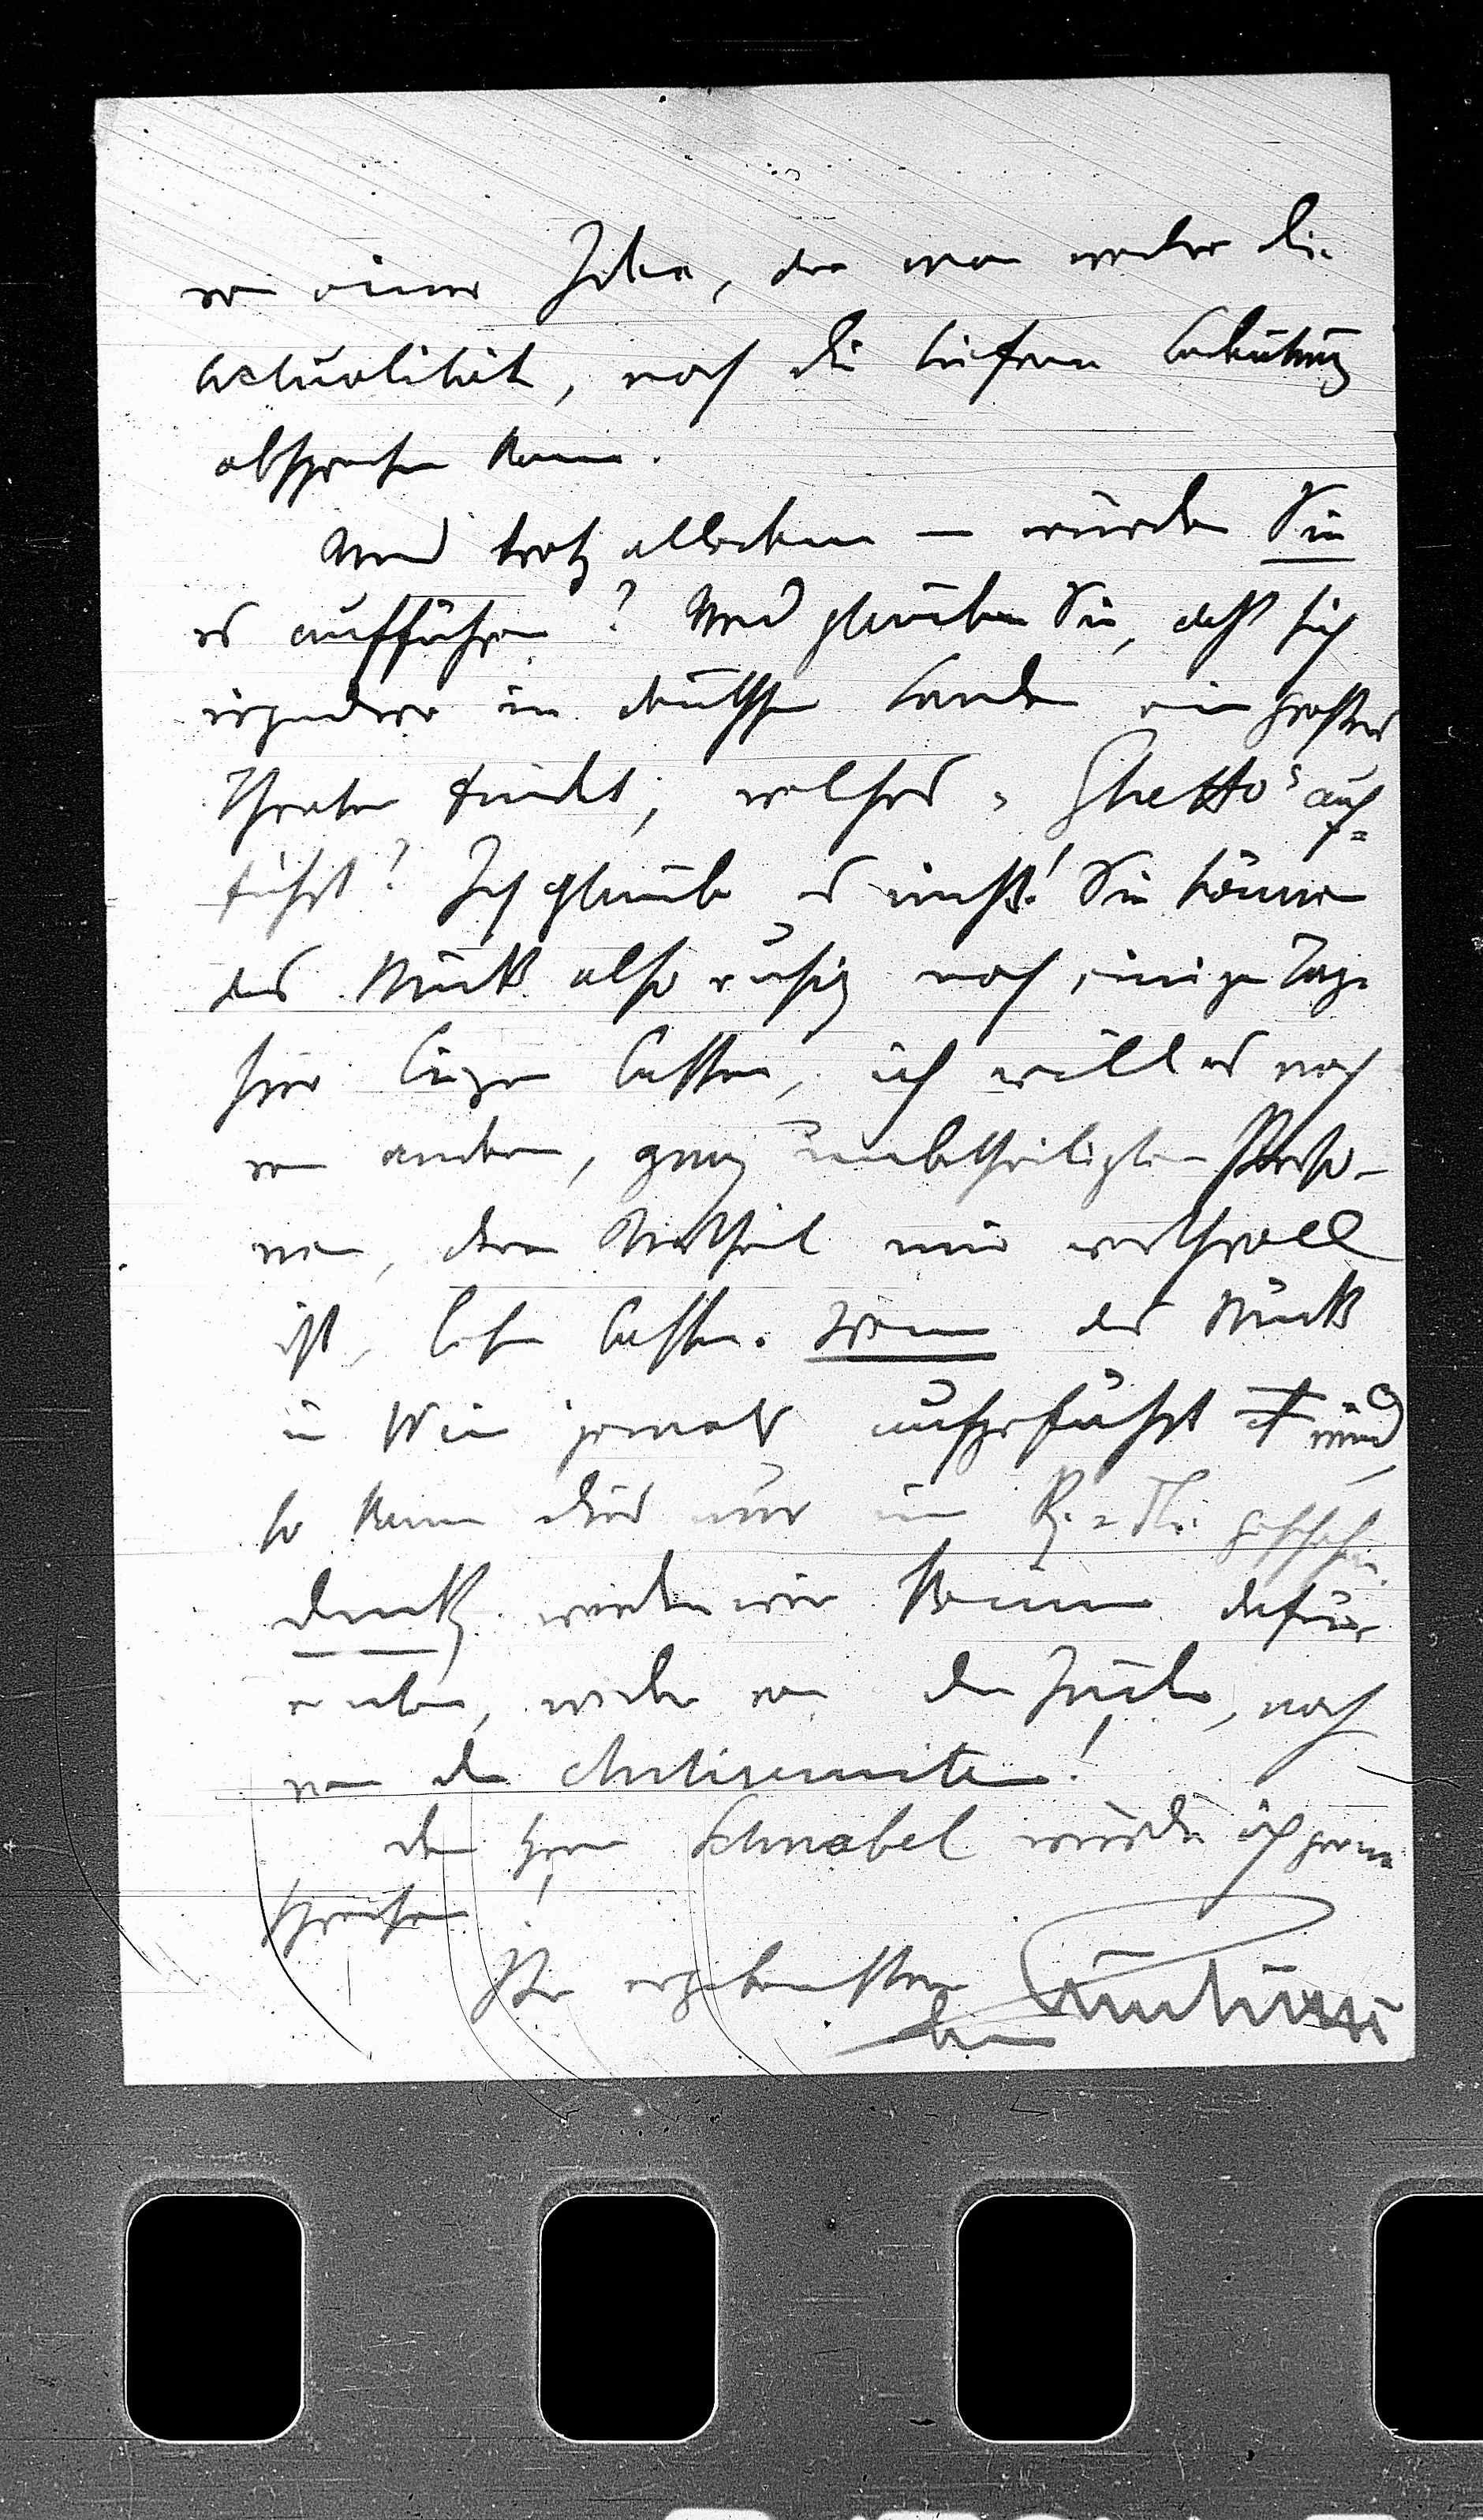 von einer Idee, der man weder die
Actualität, noch die tiefere Bedeutung
absprechen kann.
Und trotz alledem – würden Sie
es aufführen? Und glauben Sie, daſs sich
irgendwo in deutschen Landen ein großes
Theater findet, welches „Ghetto“ auf=
führt? Ich glaube es nicht! Sie können
das Stück also ruhig noch einige Tage
hier liegen lassen, ich will es noch
von anderen, ganz unbetheiligten Perso-
nen, deren Urtheil mir werthvoll
ist, lesen lassen. Wenn das Stück
in Wien jemals aufgeführt wird,
so kann dies nur im R.=Th. geschehen.
Dank werden wir keinen dafür
ernten, weder von den Juden, noch
von den Antisemiten!
Den Herrn Schnabel würde ich gerne
sprechen!
Ihr ergebenster